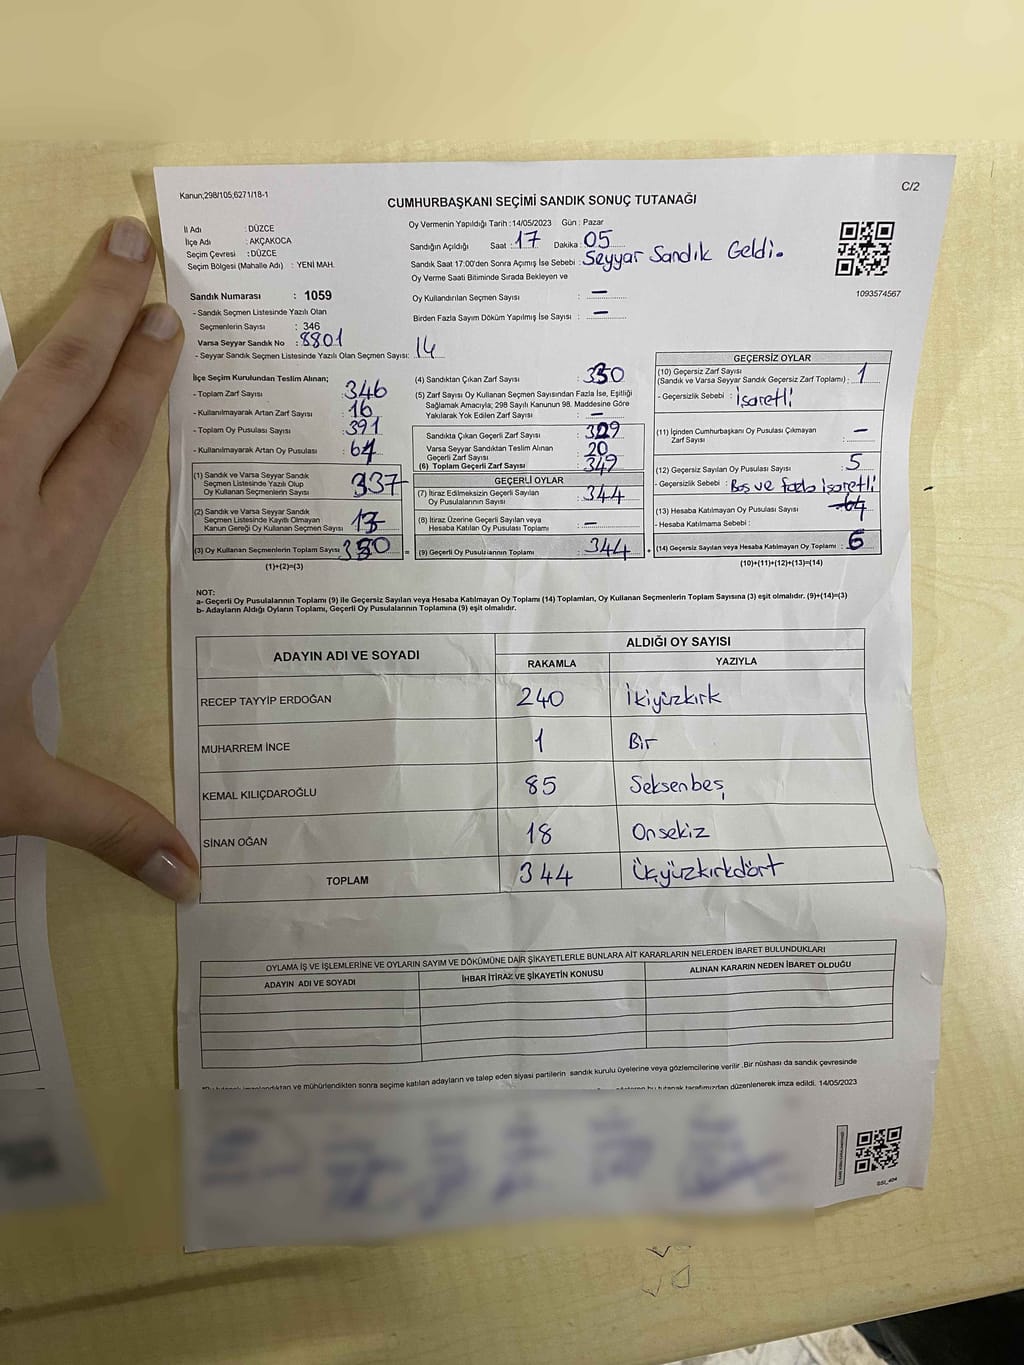 Kanun;298/105,6271/18-1
C/2
CUMHURBAŞKANI SEÇİMİ SANDIK SONUÇ TUTANAĞI
İl Adı : DÜZCE
İlçe Adı : AKÇAKOCA
Seçim Çevresi : DÜZCE
Seçim Bölgesi (Mahalle Adı) : YENİ MAH.
Oy Vermenin Yapıldığı Tarih :14/05/2023 Gün : Pazar
Sandığın Açıldığı Saat : 17 Dakika : 05
Sandık Saat 17:00'den Sonra Açımış İse Sebebi : Seyyar Sandık Geldi.
Oy Verme Saati Bitiminde Sırada Bekleyen ve
Oy Kullandırılan Seçmen Sayısı : —
Birden Fazla Sayım Döküm Yapılmış İse Sayısı : —
1093574567
Sandık Numarası : 1059
- Sandık Seçmen Listesinde Yazılı Olan
Seçmenlerin Sayısı : 346
Varsa Seyyar Sandık No : 8801
- Seyyar Sandık Seçmen Listesinde Yazılı Olan Seçmen Sayısı: 14
İlçe Seçim Kurulundan Teslim Alınan;
- Toplam Zarf Sayısı : 346
- Kullanılmayarak Artan Zarf Sayısı : 16
- Toplam Oy Pusulası Sayısı : 391
- Kullanılmayarak Artan Oy Pusulası : 64
(1) Sandık ve Varsa Seyyar Sandık
Seçmen Listesinde Yazılı Olup
Oy Kullanan Seçmenlerin Sayısı : 337
(2) Sandık ve Varsa Seyyar Sandık
Seçmen Listesinde Kayıtlı Olmayan
Kanun Gereği Oy Kullanan Seçmen Sayısı : 13
(3) Oy Kullanan Seçmenlerin Toplam Sayısı : 350
(1)+(2)=(3)
(4) Sandıktan Çıkan Zarf Sayısı : 330
(5) Zarf Sayısı Oy Kullanan Seçmen Sayısından Fazla İse, Eşitliği
Sağlamak Amacıyla; 298 Sayılı Kanunun 98. Maddesine Göre
Yakılarak Yok Edilen Zarf Sayısı : —
Sandıkta Çıkan Geçerli Zarf Sayısı : 329
Varsa Seyyar Sandıktan Teslim Alınan
Geçerli Zarf Sayısı : 20
(6) Toplam Geçerli Zarf Sayısı : 349
GEÇERLİ OYLAR
(7) İtiraz Edilmeksizin Geçerli Sayılan
Oy Pusulalarının Sayısı : 344
(8) İtiraz Üzerine Geçerli Sayılan veya
Hesaba Katılan Oy Pusulası Toplamı : —
(9) Geçerli Oy Pusulalarının Toplamı : 344
GEÇERSİZ OYLAR
(10) Geçersiz Zarf Sayısı
(Sandık ve Varsa Seyyar Sandık Geçersiz Zarf Toplamı) : 1
- Geçersizlik Sebebi : İsaretli
(11) İçinden Cumhurbaşkanı Oy Pusulası Çıkmayan
Zarf Sayısı : —
(12) Geçersiz Sayılan Oy Pusulası Sayısı : 5
- Geçersizlik Sebebi : Boş ve fazla isaretli
(13) Hesaba Katılmayan Oy Pusulası Sayısı : 64
- Hesaba Katılmama Sebebi :
(14) Geçersiz Sayılan veya Hesaba Katılmayan Oy Toplamı : 6
(10)+(11)+(12)+(13)=(14)
NOT:
a- Geçerli Oy Pusulalarının Toplamı (9) ile Geçersiz Sayılan veya Hesaba Katılmayan Oy Toplamı (14) Toplamları, Oy Kullanan Seçmenlerin Toplam Sayısına (3) eşit olmalıdır. (9)+(14)=(3)
b- Adayların Aldığı Oyların Toplamı, Geçerli Oy Pusulalarının Toplamına (9) eşit olmalıdır.
ADAYIN ADI VE SOYADI ALDIĞI OY SAYISI
RAKAMLA YAZIYLA
RECEP TAYYİP ERDOĞAN 240 İkiyüzkırk
MUHARREM İNCE 1 Bir
KEMAL KILIÇDAROĞLU 85 Seksenbeş
SİNAN OĞAN 18 Onsekiz
TOPLAM 344 Üçyüzkırkdört
OYLAMA İŞ VE İŞLEMLERİNE VE OYLARIN SAYIM VE DÖKÜMÜNE DAİR ŞİKAYETLERLE BUNLARA AİT KARARLARIN NELERDEN İBARET BULUNDUKLARI
ADAYIN ADI VE SOYADI İHBAR İTİRAZ VE ŞİKAYETİN KONUSU ALINAN KARARIN NEDEN İBARET OLDUĞU
imzalandıktan ve mühürlendikten sonra seçime katılan adayların ve talep eden siyasi partilerin sandık kurulu üyelerine veya gözlemcilerine verilir .Bir nüshası da sandık çevresinde
bu tutanak tarafımızdan düzenlenerek imza edildi. 14/05/2023